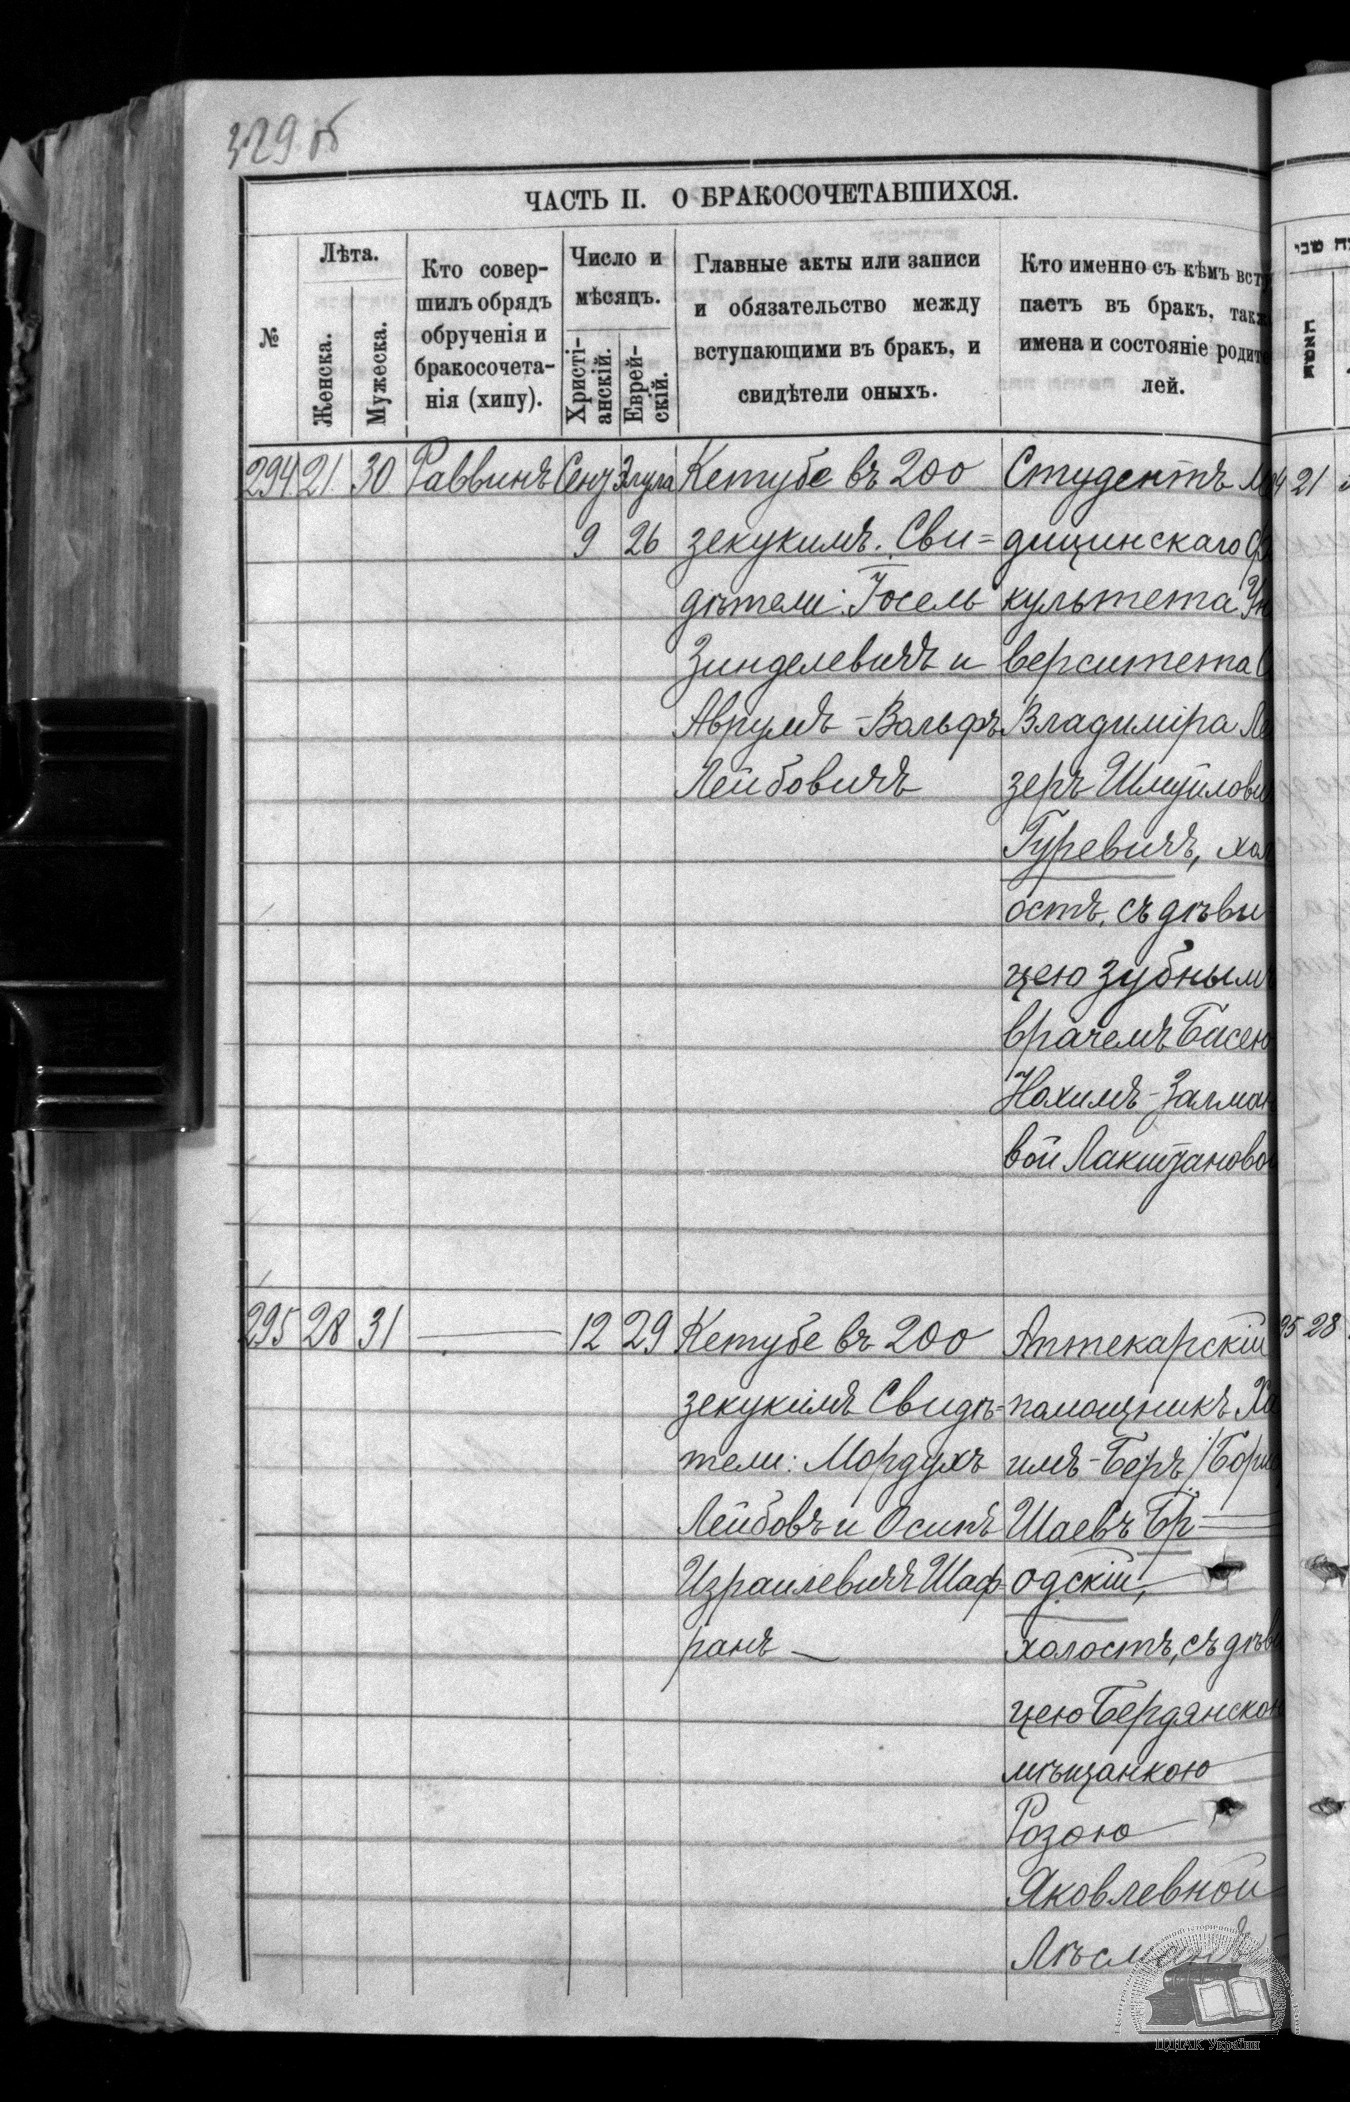 329 об
ЧАСТЬ II. О БРАКОСОЧЕТАВШИХСЯ.
№
Лѣта.
Женска.
Мужеска.
Кто совер-
шилъ обрядъ
обрученія и
бракосочета-
нія (хипу).
Число и
мѣсяцъ.
Христі-
анскій.
Еврей-
скій.
Главные акты или записи
и обязательство между
вступающими въ бракъ, и
свидѣтели оныхъ.
Кто именно съ кѣмъ всту
паетъ въ бракъ, такж
имена и состояніе родите
лей.
294 21 30 Раввинъ Сент Элула
9 26
Кетубе въ 200
зекукимъ. Сви=
дѣтели: Іосель
Зинделевичъ и
Аврумъ-Вольфъ
Лейбовичъ
Студентъ Ме
дицинскаго Фа
культета Ун
верситета С
Владиміра Ле
зеръ Шмуйлови
Гуревичъ, хол
остъ, съ дѣви
цею зубнымъ
врачемъ Басею
Нохимъ-Залман
вой Лакшзановой
295 28 31 12 29
Кетубе въ 200
зекукимъ Свидѣ=
тели: Мордухъ
Лейбовъ и Осипъ
Израилевичъ Шаф
ранъ
Аптекарскій
помощникъ Ха
имъ-Беръ /Борис
Шаевъ Бр
одскій,
холостъ, съ дѣви
цею Бердянскою
мѣщанкою
Розою
Яковлевной
Лѣсманъ
94 21
95 28
ЦДІАК України